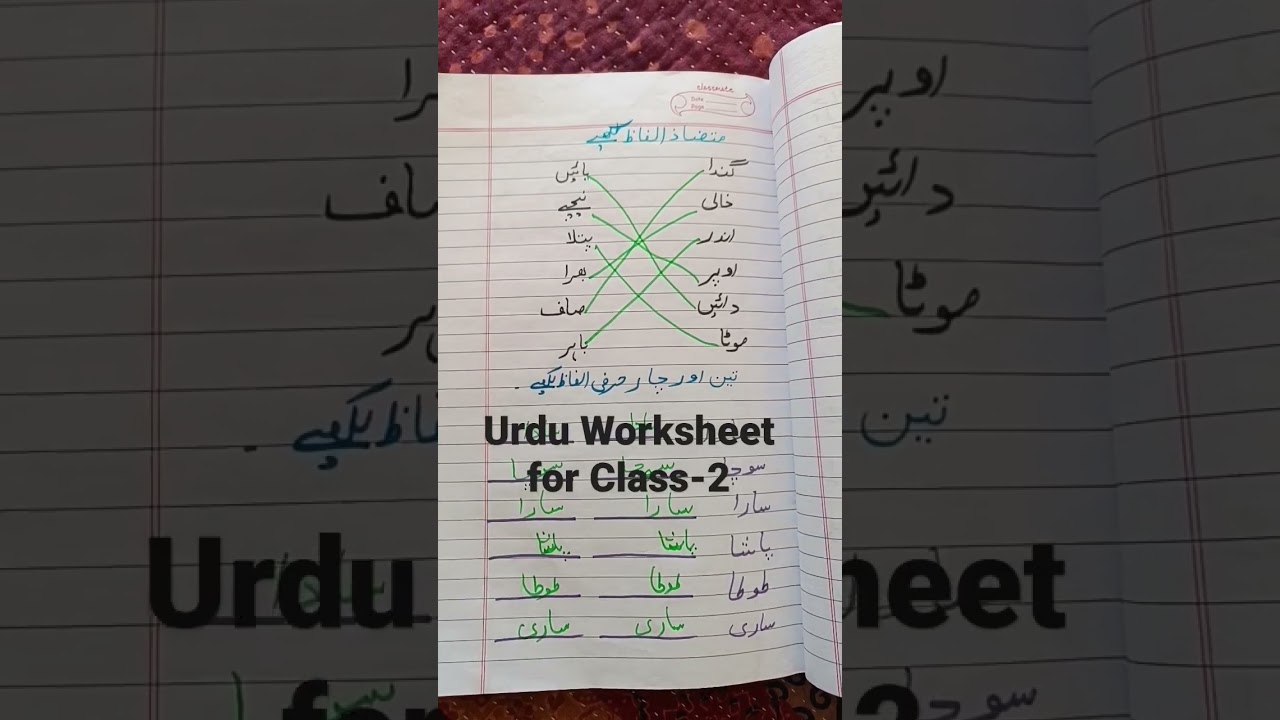 classmate
Date
Page
متضاد الفاظ لکھیے
گندا بائیں
خالی نیچے
اندر پتلا
اوپر بھرا
دائیں صاف
موٹا باہر
تین اور چار حرفی الفاظ لکھیے ۔
Urdu Worksheet
for Class-2
سوچا سوچا سوچا
سارا سارا سارا
طوطا طوطا طوطا
ساری ساری ساری